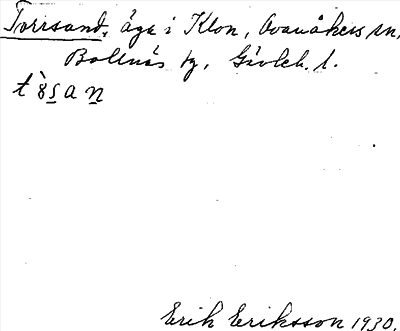 Torrsand, äga i Klon, Ovanåkers sn,
Bollnäs tg, Gävleb. l.
t`ȣs̲an̲
Erik Eriksson 1930.